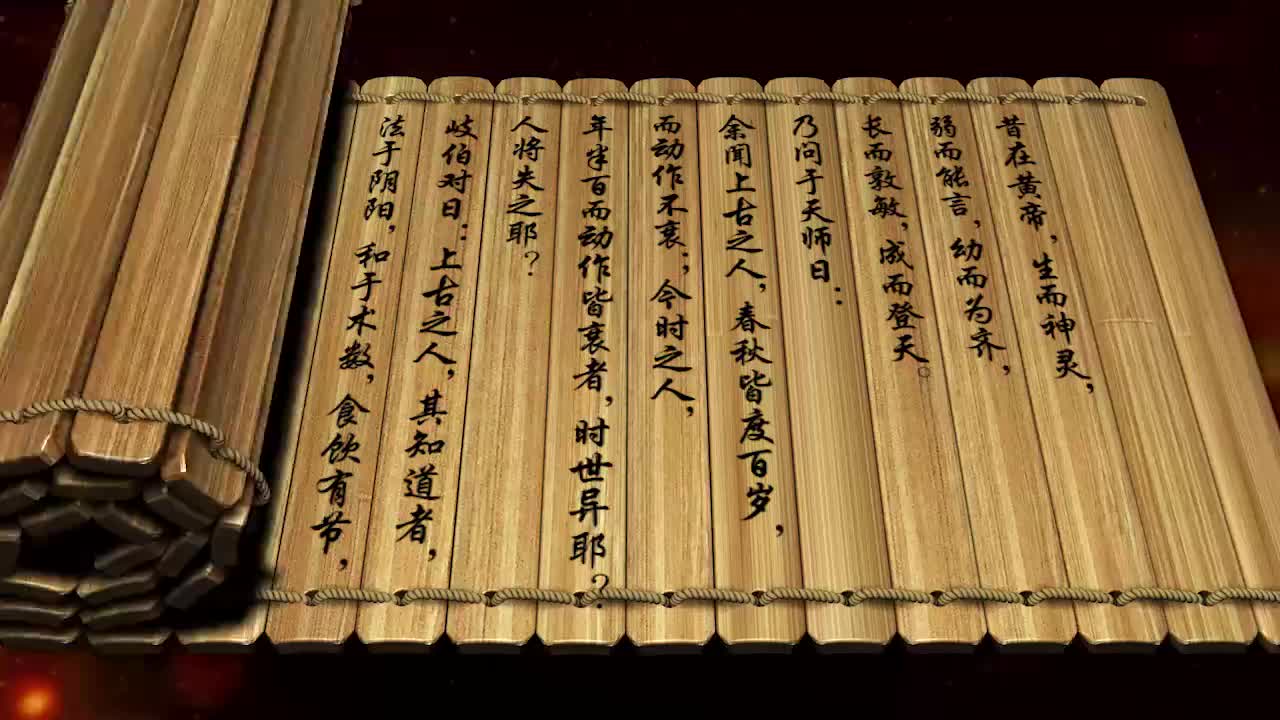 昔在黄帝，生而神灵，
弱而能言，幼而为齐，
长而敦敏，成而登天。
乃问于天师曰：
余闻上古之人，春秋皆度百岁，
而动作不衰；今时之人，
年半百而动作皆衰者，时世异耶？
人将失之耶？
岐伯对曰：上古之人，其知道者，
法于阴阳，和于术数，食饮有节，